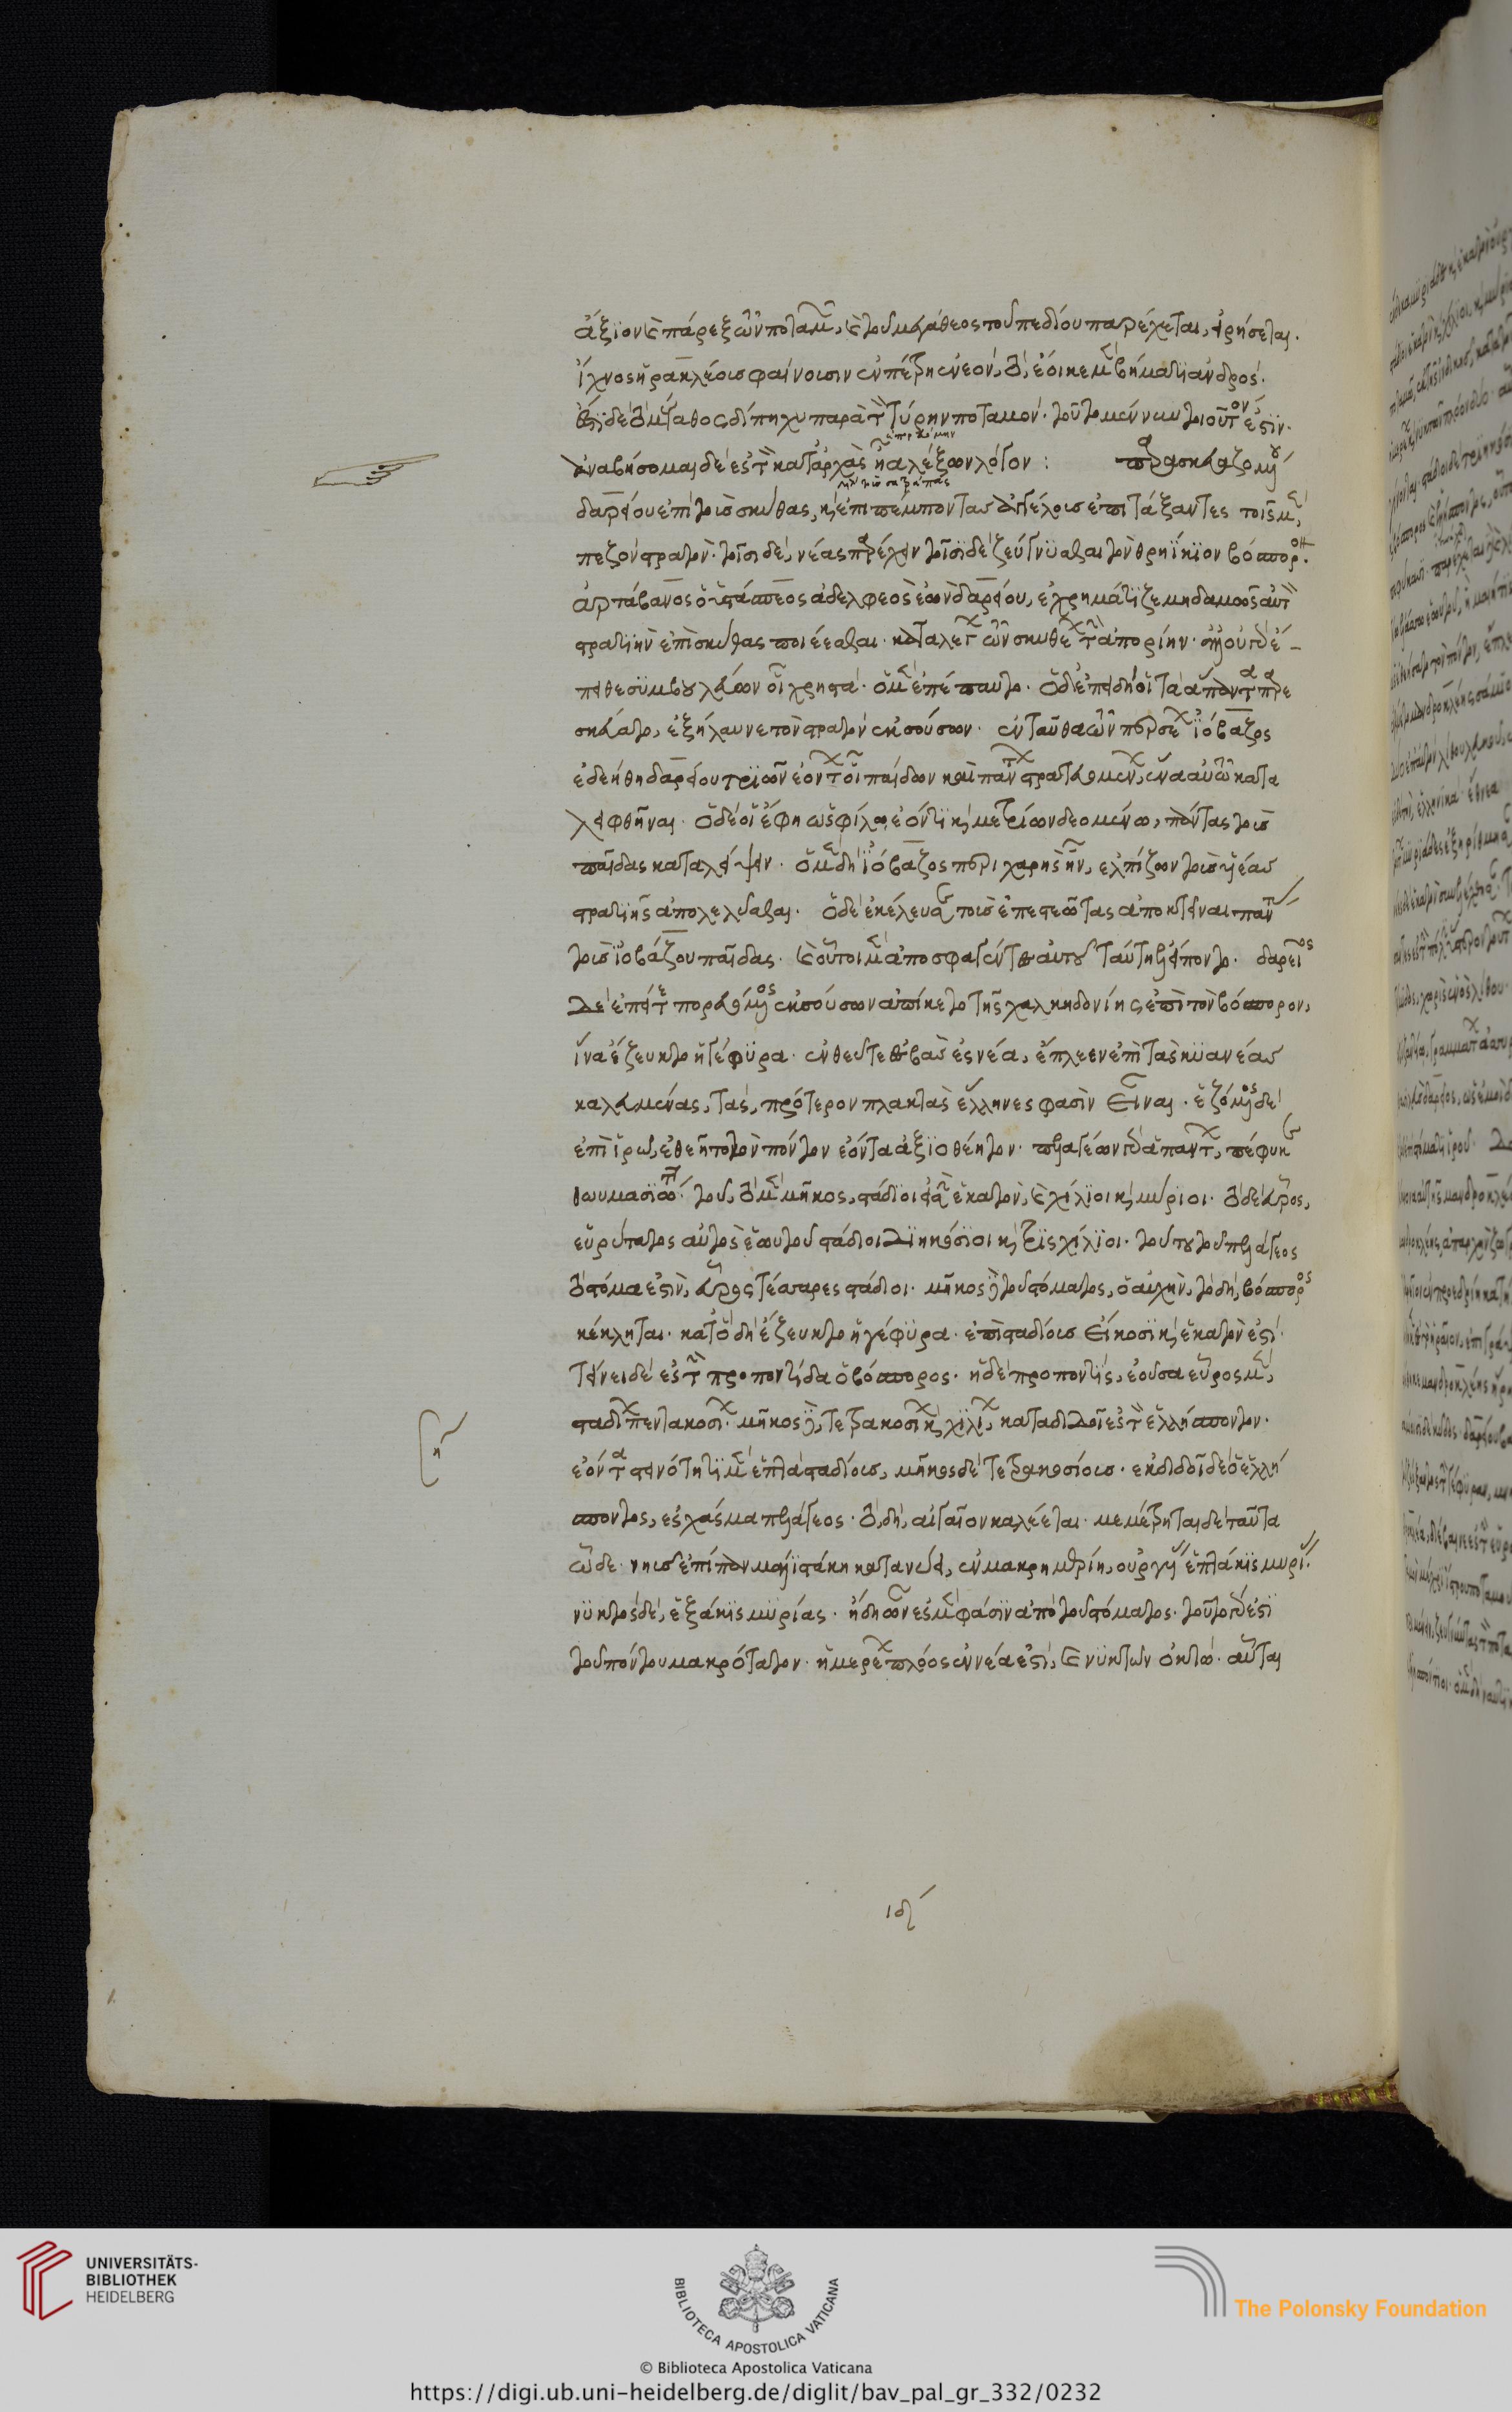 ἄξιον καὶ πάρεξ ὦν ποταμῶν, καὶ τοῦ μεγάθεος τοῦ πεδίου παρέχεται, εἰρήσεται.
ἴχνος ἡρακλέος φαίνουσιν ἐν πέτρη ἐνεόν, τὸ ἔοικε μὲν βήματι ἀνδρός.
ἔστι δὲ τὸ μέγαθος δίπηχυ παρὰ τὸν τύρην ποταμόν. τοῦτο μέν νυν τοιοῦτόν ἐστιν.
ἀναβήσομαι δὲ ἐς τὸν κατ' ἀρχὰς ἤια λέξων λόγον : παρασκευαζομένου
δαρείου ἐπὶ τοὺς σκύθας, καὶ ἐπιπέμποντας ἀγγέλους ἐπιτάξαντες τοῖς μὲν,
πεζὸν στρατόν. τοῖσι δὲ, νέας παρέχειν τοῖσι δὲ ζευγνύασθαι τὸν θρηίκιον βόσπορον.
ἀρτάβανος ὁ ὑστάσπεος ἀδελφεὸς ἐὼν δαρείου, ἐχρημάτιζε μηδαμῶς αὐτὸν
στρατιὴν ἐπὶ σκύθας ποιέεσθαι. καταλέγων σκυθέων τὴν ἀπορίην. ἀλλ' οὐ γὰρ ἔ-
πειθε συμβουλεύων οἱ χρηστά. ὁ μὲν ἐπέπαυτο. ὁ δὲ ἐπειδή οἱ τὰ ἅπαντα παρε
σκεύατο, ἐξήλαυνε τὸν στρατὸν ἐκ σούσων. ἐνταῦθα ὦν περσέων ἰόβαζος
ἐδεήθη δαρείου τριῶν ἐόντων οἱ παίδων καὶ πάντων στρατευομένων, ἕνα αὐτῶ κατα
λειφθῆναι. ὁ δέ οἱ ἔφη ὡς φίλω ἐόντι καὶ μετρίων δεομένω, πάντας τοὺς
παῖδας καταλείψειν. ὁ μὲν δὴ ἰόβαζος περιχαρὴς ἦν, ἐλπίζων τοὺς υἱέας
στρατιῆς ἀπολελύσθαι. ὁ δὲ ἐκέλευσε τοὺς ἐπεστεῶτας ἀποκτεῖναι πάντας
τοὺς ἰοβάζου παῖδας. καὶ οὗτοι μὲν ἀποσφαγέντες αὐτοῦ ταύτη ἐλείποντο. δαρεῖος
δὲ ἐπεί τε πορευόμενος ἐκ σούσων ἀπίκετο τῆς χαλκηδονίης ἐπὶ τὸν βόσπορον,
ἵνα ἔζευκτο ἡ γέφυρα. ἐνθεῦτεν ἐμβὰς ἐς νέα, ἔπλεεν ἐπὶ τὰς κυανέας
καλευμένας, τὰς, πρότερον πλακτὰς ἕλληνες φασὶν εἶναι. ἑζόμενος δὲ
ἐπὶ ἱρῶ, ἐθεῆτο τὸν πόντον ἐόντα ἀξιοθέητον. πελαγέων γὰρ ἁπάντων, πέφυκε
θωυμασιώτατος. τοῦ, τὸ μὲν μῆκος, στάδιοι εἰσὶ ἑκατὸν, καὶ χίλιοι καὶ μύριοι. τὸ δὲ εὖρος,
εὐρύτατος αὐτὸς ἑωυτοῦ στάδιοι διηκόσιοι καὶ τρισχίλιοι. τούτου τοῦ πελάγεος
τὸ στόμα ἐστὶν, εὖρος τέσσαρες στάδιοι. μῆκος δὲ τοῦ στόματος, ὁ αὐχὴν, τὸ δὴ, βόσπορος
κέκληται. κατ' ὃ δὴ ἔζευκτο ἡ γέφυρα. ἐπὶ σταδίους εἴκοσι καὶ ἑκατὸν ἐστί.
τείνει δὲ ἐς τὴν προποντίδα ὁ βόσπορος. ἡ δὲ προποντὶς, ἐοῦσα εὖρος μὲν,
σταδίων πεντακοσίων. μῆκος δὲ, τετρακοσίων καὶ χιλίων, καταδιδοῖ ἐς τὸν ἑλλήσποντον.
η
ἐόντα στεινότητι μὲν ἑπτὰ σταδίους, μῆκος δὲ τετρακοσίους. ἐκδιδοῖ δὲ ὁ ἑλλή
σποντος, ἐς χάσμα πελάγεος. τὸ, δὴ, αἰγαῖον καλέεται. μεμέτρηται δὲ ταῦτα
ὧδε. νηῦς ἐπίπαν μάλιστά κη κατανύει, ἐν μακρημερίη, ὀργυιὰς ἑπτάκις μυρίας.
νυκτὸς δὲ, ἑξάκις μυρίας. ἤδη ὦν ἐς μὲν φᾶσιν ἀπὸ τοῦ στόματος. τοῦτο γάρ ἐστι
τοῦ πόντου μακρότατον. ἡμερέων πλόος ἐννέα ἐστί, καὶ νυκτῶν ὀκτώ. αὗται
ιδ
UNIVERSITÄTS-
BIBLIOTHEK
HEIDELBERG
BIBLIOTECA APOSTOLICA VATICANA
The Polonsky Foundation
© Biblioteca Apostolica Vaticana
https://digi.ub.uni-heidelberg.de/diglit/bav_pal_gr_332/0232